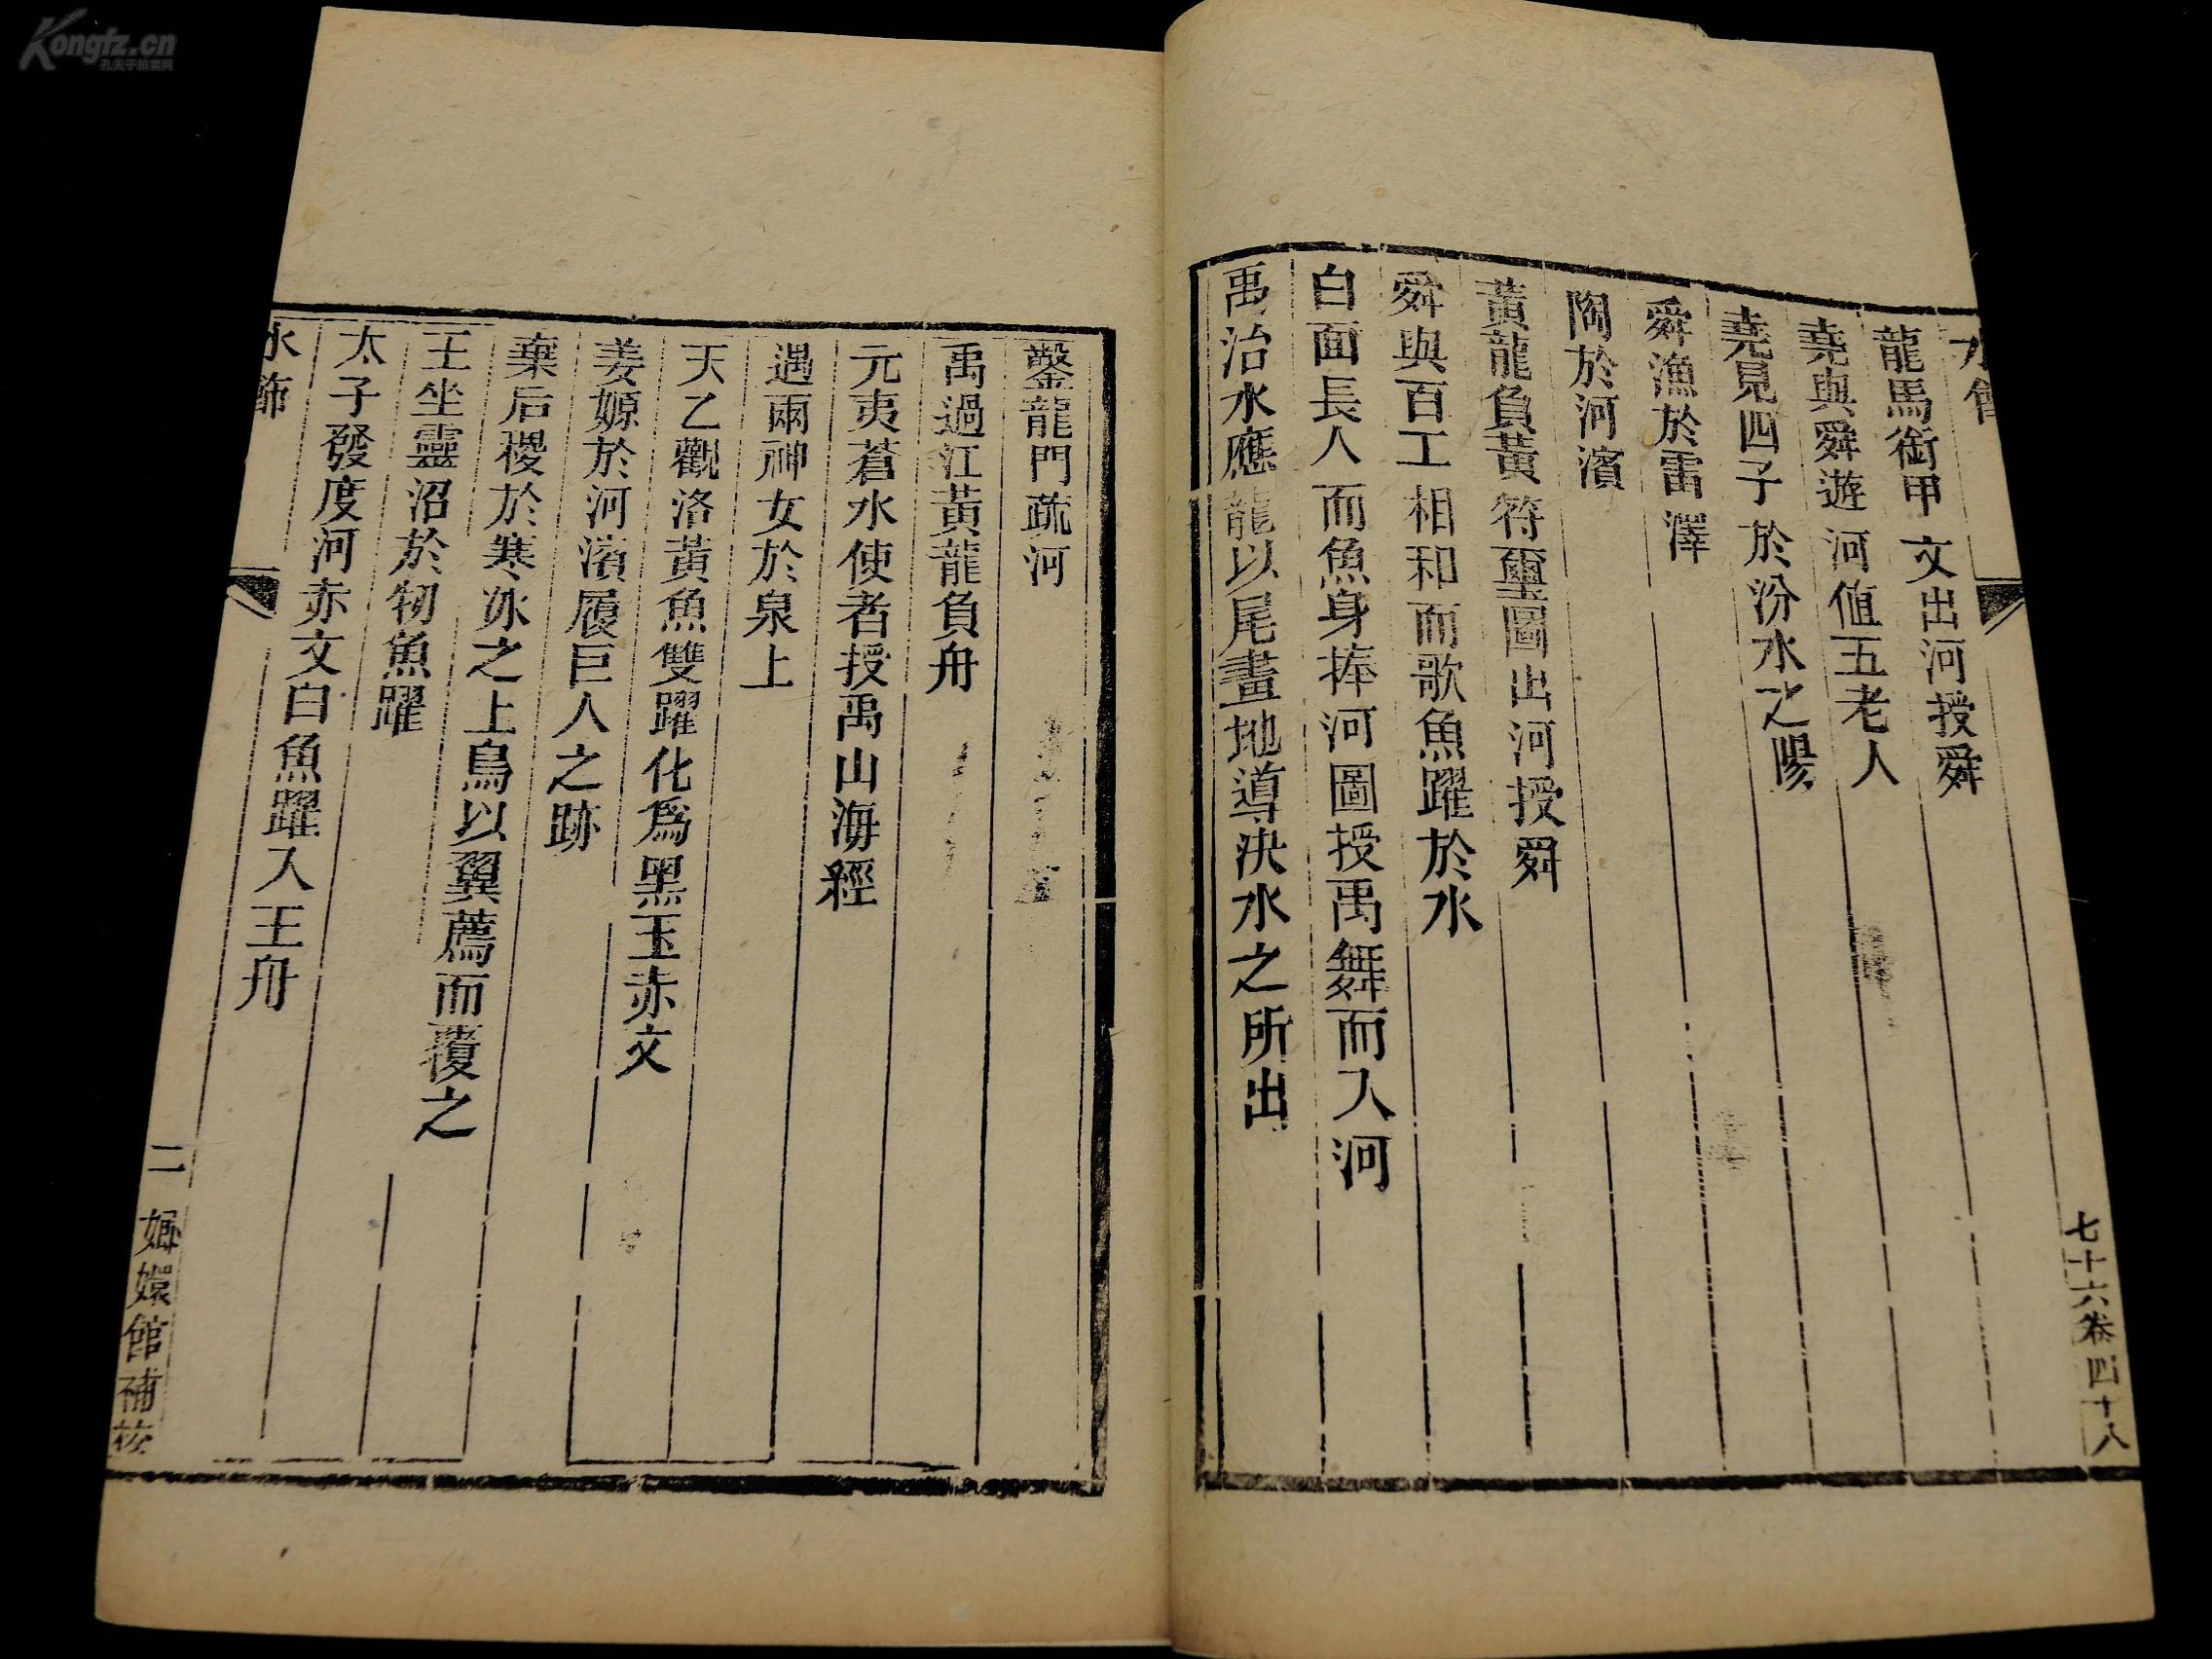 Kongfz.cn
孔夫子拍卖网
水飾
七十六卷四十八
龍馬銜甲文出河授舜
堯與舜遊河值五老人
堯見四子於汾水之陽
舜漁於雷澤
陶於河濱
黃龍負黃符璽圖出河授舜
舜與百工相和而歌魚躍於水
白面長人而魚身捧河圖授禹舞而入河
禹治水應龍以尾畫地導決水之所出
鑿龍門疏河
禹過江黃龍負舟
元夷蒼水使者授禹山海經
遇兩神女於泉上
天乙觀洛黃魚雙躍化爲黑玉赤文
姜嫄於河濱履巨人之跡
棄后稷於寒冰之上鳥以翼薦而覆之
王坐靈沼於牣魚躍
太子發度河赤文白魚躍入王舟
水飾
二
嫏嬛館補校